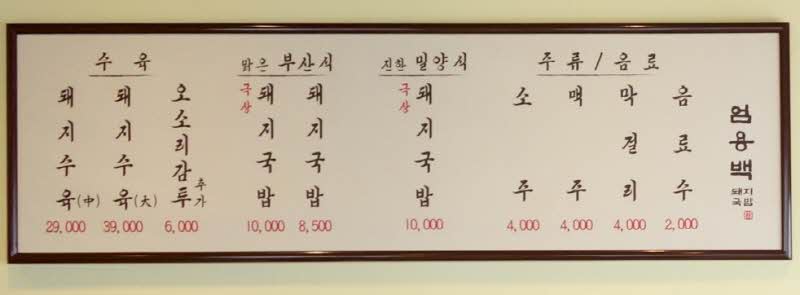 수육
돼지수육(中)
29,000
돼지수육(大)
39,000
오소리감투 추가
6,000
맑은 부산식
극상 돼지국밥
10,000
돼지국밥
8,500
진한 밀양식
극상 돼지국밥
10,000
주류/음료
소주
4,000
맥주
4,000
막걸리
4,000
음료수
2,000
엄용백
돼지국밥